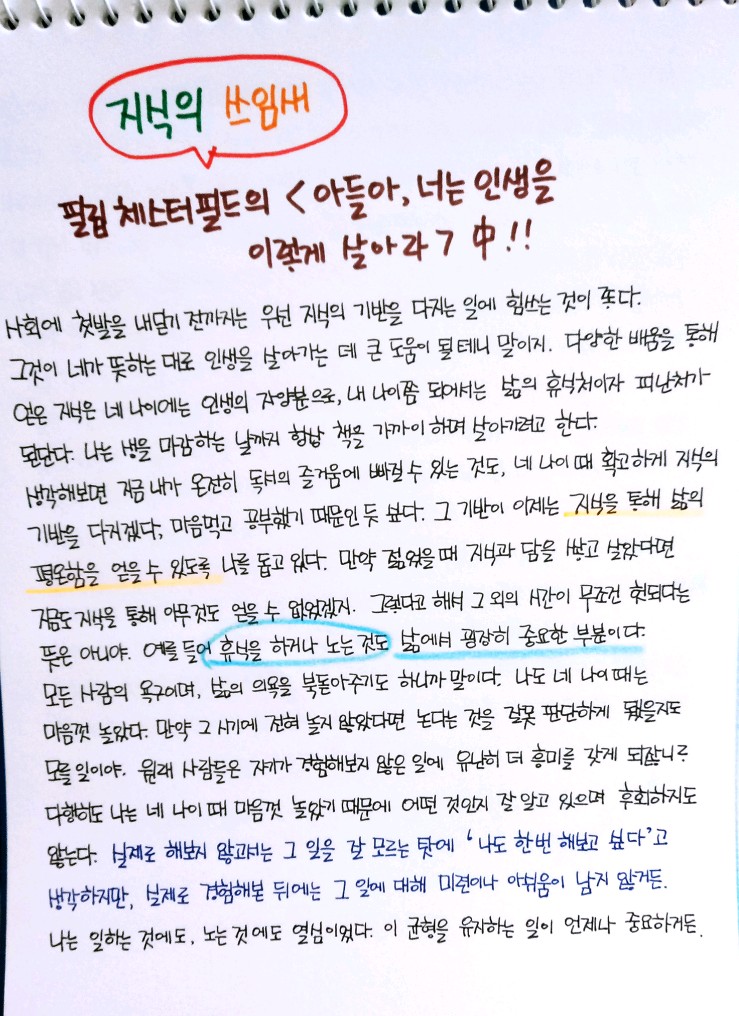 지식의 쓰임새
필립 체스터필드의 < 아들아, 너는 인생을
이렇게 살아라 > 中 !!
사회에 첫발을 내딛기 전까지는 우선 지식의 기반을 다지는 일에 힘쓰는 것이 좋다.
그것이 네가 뜻하는 대로 인생을 살아가는 데 큰 도움이 될테니 말이지. 다양한 배움을 통해
얻은 지식은 네 나이에는 인생의 자양분으로, 내 나이쯤 되어서는 삶의 휴식처이자 피난처가
된단다. 나는 생을 마감하는 날까지 항상 책을 가까이 하며 살아가려고 한다.
생각해보면 지금 내가 온전히 독서의 즐거움에 빠질 수 있는 것도, 네 나이 때 확고하게 지식의
기반을 다지겠다, 마음먹고 공부했기 때문인 듯 싶다. 그 기반이 이제는 지식을 통해 삶의
평온함을 얻을 수 있도록 나를 돕고 있다. 만약 젊었을 때 지식과 담을 쌓고 살았다면
지금도 지식을 통해 아무것도 얻을 수 없었겠지. 그렇다고 해서 그 외의 시간이 무조건 헛되다는
뜻은 아니야. 예를 들어 휴식을 하거나 노는 것도 삶에서 굉장히 중요한 부분이다.
모든 사람의 욕구이며, 삶의 의욕을 북돋아주기도 하니까 말이다. 나도 네 나이 때는
마음껏 놀았다. 만약 그 시기에 전혀 놀지 않았다면 논다는 것을 잘못 판단하게 됐을지도
모를 일이야. 원래 사람들은 자기가 경험해보지 않은 일에 유난히 더 흥미를 갖게 되잖니?
다행히도 나는 네 나이 때 마음껏 놀았기 때문에 어떤 것인지 잘 알고 있으며 후회하지도
않는다. 실제로 해보지 않고서는 그 일을 잘 모르는 탓에 '나도 한번 해보고 싶다'고
생각하지만, 실제로 경험해본 뒤에는 그 일에 대해 미련이나 아쉬움이 남지 않거든.
나는 일하는 것에도, 노는 것에도 열심이었다. 이 균형을 유지하는 일이 언제나 중요하거든.